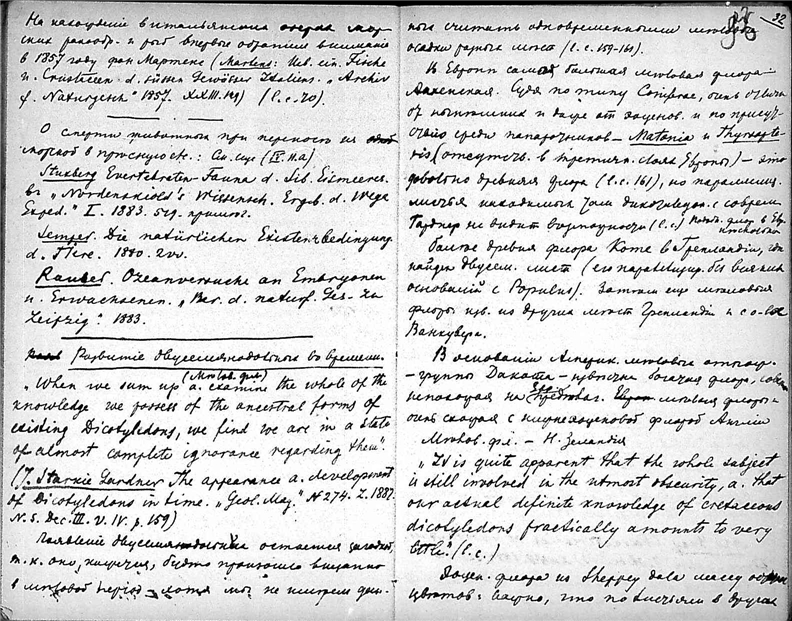 На нахождение в итальянских озерах мор-
ских ракообр. и рыб впервые обратил внимание
в 1857 году фон Мартенс (Martens: Ueb. ein. Fische
u. Crustaceen d. süssen Gewässer Italiens. „Archiv
f. Naturgesch" 1857. XXIII.) (l.c. 70).
О смерти животных при переносе из
морской в пресную etc.: См. еще (IV. 11.a)
Stuxberg Evertebraten-Fauna d. Sib. Eismeeres.
въ „Nordenskiöld's Wissensch. Ergeb. d. Vega
Exped." I. 1883. 519. примеч.
Semper. Die natürlichen Existenzbedingung.
d. Tiere. 1880.
Rauber. Ozeanversuche an Embryonen
u. Erwachsenen. „Ber. d. naturf. Ges. zu
Leipzig". 1883.
Развитие двусемянодольных во времени.
(Мелов. фл.)
„When we sum up a. examine the whole of the
knowledge we possess of the ancestral forms of
existing Dicotyledons, we find we are in a state
of almost complete ignorance regarding them".
(J. Starkie Gardner The appearance a. development
of Dicotyledons in time. „Geol. Mag." N 274. Z. 1887.
N. 5. Dec. III. V. IV. p. 159)
Появление двусемянодольных остается загадкой,
т.к. они, кажется, будто произошло внезапно
в меловой период – хотя мы не имеем дан-
32
ных считать одновременными меловые
осадки разных мест (l.c. 159-161).
В Европе самая большая меловая флора
Аахенская. Судя по типу Coniferae, очень отлична
от нынешних и даже от эоценов. и по присут-
ствию среди папоротников – Matonia и Thyrsopte-
ris (отсутств. в третичн. слоях Европы) – это
довольно древняя флора (l.c. 161), но
находимых там дикотиледон. с соврем.
Гарднер не видит возможности (l.c.)
Более древняя флора Коме в Гренландии, где
найден двусем. лист (его параллелизир. без всяких
оснований с Populus). Затем еще меловыя
флоры изв. из других мест Гренландии и с о-ва
Ванкувера.
В основании Америк. меловых отлож.
– группы Dakota – изучена богатая флора,
непохожая на меловыя флоры и
очень сходная с нижнеэоценовой флорой Англии
Мелов. фл. – Н. Зеландия
„It is quite apparent that the whole subject
is still involved in the utmost obscurity, a. that
our actual definite knowledge of cretaceous
dicotyledons practically amounts to very
little." (l.c.)
Эоцен. флора из Sheppey дала массу
цветов: важно, что по листьям в других